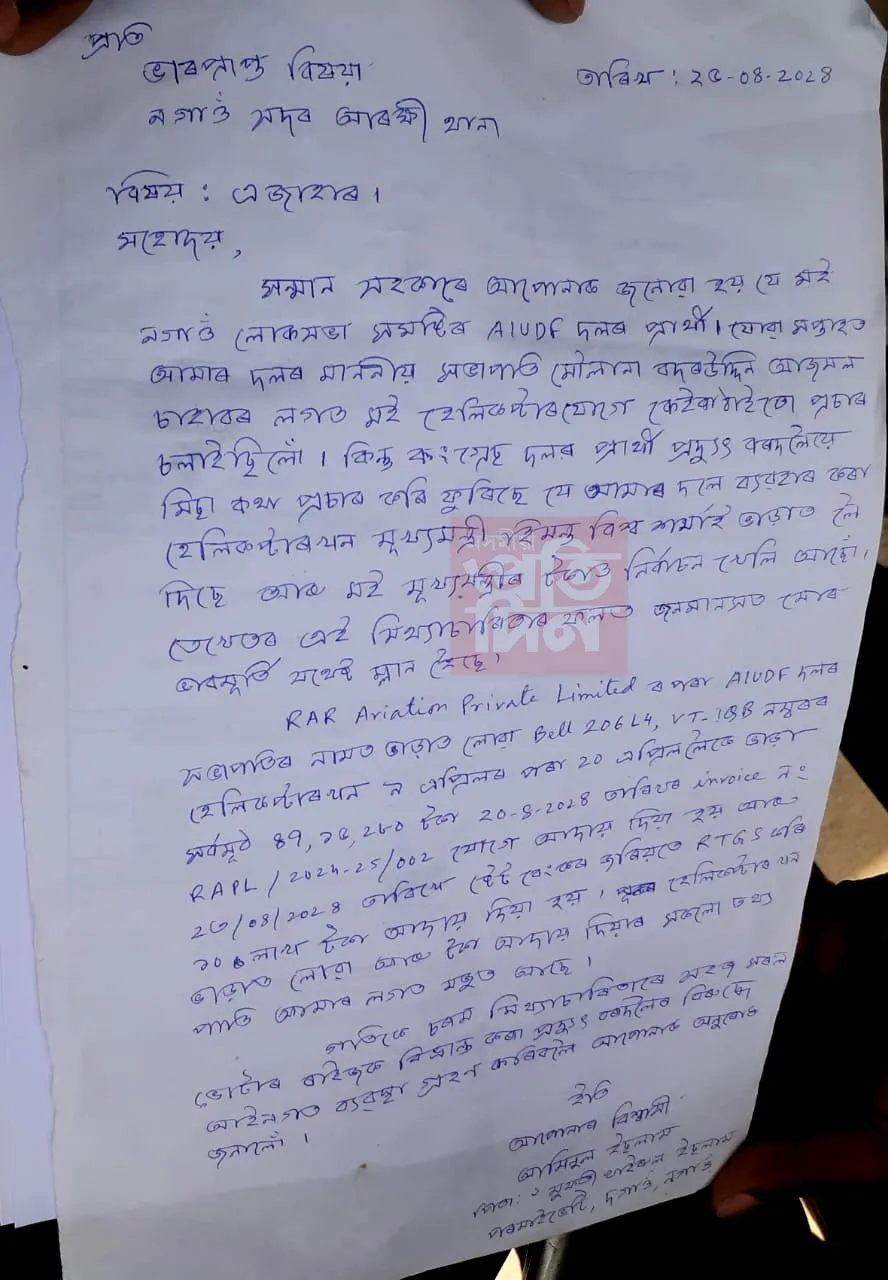 প্ৰতি
ভাৰপ্ৰাপ্ত বিষয়া
তাৰিখ : ২৫-০৪-২০২৪
নগাওঁ সদৰ আৰক্ষী থানা
বিষয় : এজাহাৰ ।
মহোদয়,
সন্মান সহকাৰে আপোনাক জনোৱা হয় যে মই
নগাওঁ লোকসভা সমষ্টিৰ AIUDF দলৰ প্ৰাৰ্থী । যোৱা সপ্তাহত
আমাৰ দলৰ মাননীয় সভাপতি মৌলানা বদৰউদ্দিন আজমল
চাহাবৰ লগত মই হেলিকপ্টাৰযোগে কেইবাঠাইতো প্ৰচাৰ
চলাইছিলোঁ । কিন্তু কংগ্ৰেছ দলৰ প্ৰাৰ্থী প্ৰদ্যুৎ বৰদলৈয়ে
মিছা কথা প্ৰচাৰ কৰি ফুৰিছে যে আমাৰ দলে ব্যৱহাৰ কৰা
হেলিকপ্টাৰখন মুখ্যমন্ত্ৰী হিমন্ত বিশ্ব শৰ্মাই ভাড়াত লৈ
দিছে আৰু মই মুখ্যমন্ত্ৰীৰ টকাত নিৰ্বাচন খেলি আছোঁ ।
তেখেতৰ এই মিথ্যাচাৰিতাৰ ফলত জনমানসত মোৰ
ভাবমূৰ্তি যথেষ্ট ম্লান হৈছে ।
অসমীয়া
প্ৰতি
দিন
RAR Aviation Private Limited ৰ পৰা AIUDF দলৰ
সভাপতিৰ নামত ভাড়াত লোৱা Bell 206L4, VT- নম্বৰৰ
হেলিকপ্টাৰখন ৯ এপ্ৰিলৰ পৰা 20 এপ্ৰিললৈকে ভাড়া
সৰ্বমুঠ টকা 20-৪-202৪ তাৰিখৰ invoice নং
RAPL/2024-25/002 যোগে আদায় দিয়া হয় আৰু
/০৪/202৪ তাৰিখে ষ্টেট বেংকৰ জৰিয়তে RTGS কৰি
লাখ টকা আদায় দিয়া হয় । হেলিকপ্টাৰ খন
ভাড়াত লোৱা আৰু টকা আদায় দিয়াৰ সকলো তথ্য
পাতি আমাৰ লগত মজুত আছে ।
গতিকে চৰম মিথ্যাচাৰিতাৰে সহজ সৰল
ভোটাৰ ৰাইজক বিভ্ৰান্ত কৰা প্ৰদ্যুৎ বৰদলৈৰ বিৰুদ্ধে
আইনগত ব্যৱস্থা গ্ৰহণ কৰিবলৈ আপোনাক অনুৰোধ
জনালোঁ ।
ইতি
আপোনাৰ বিশ্বাসী
আমিনুল ইছলাম
পিতা : ইছলাম
দগাওঁ, নগাওঁ